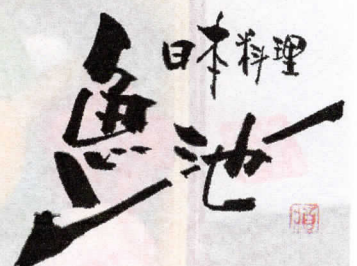 日本料理
魚池